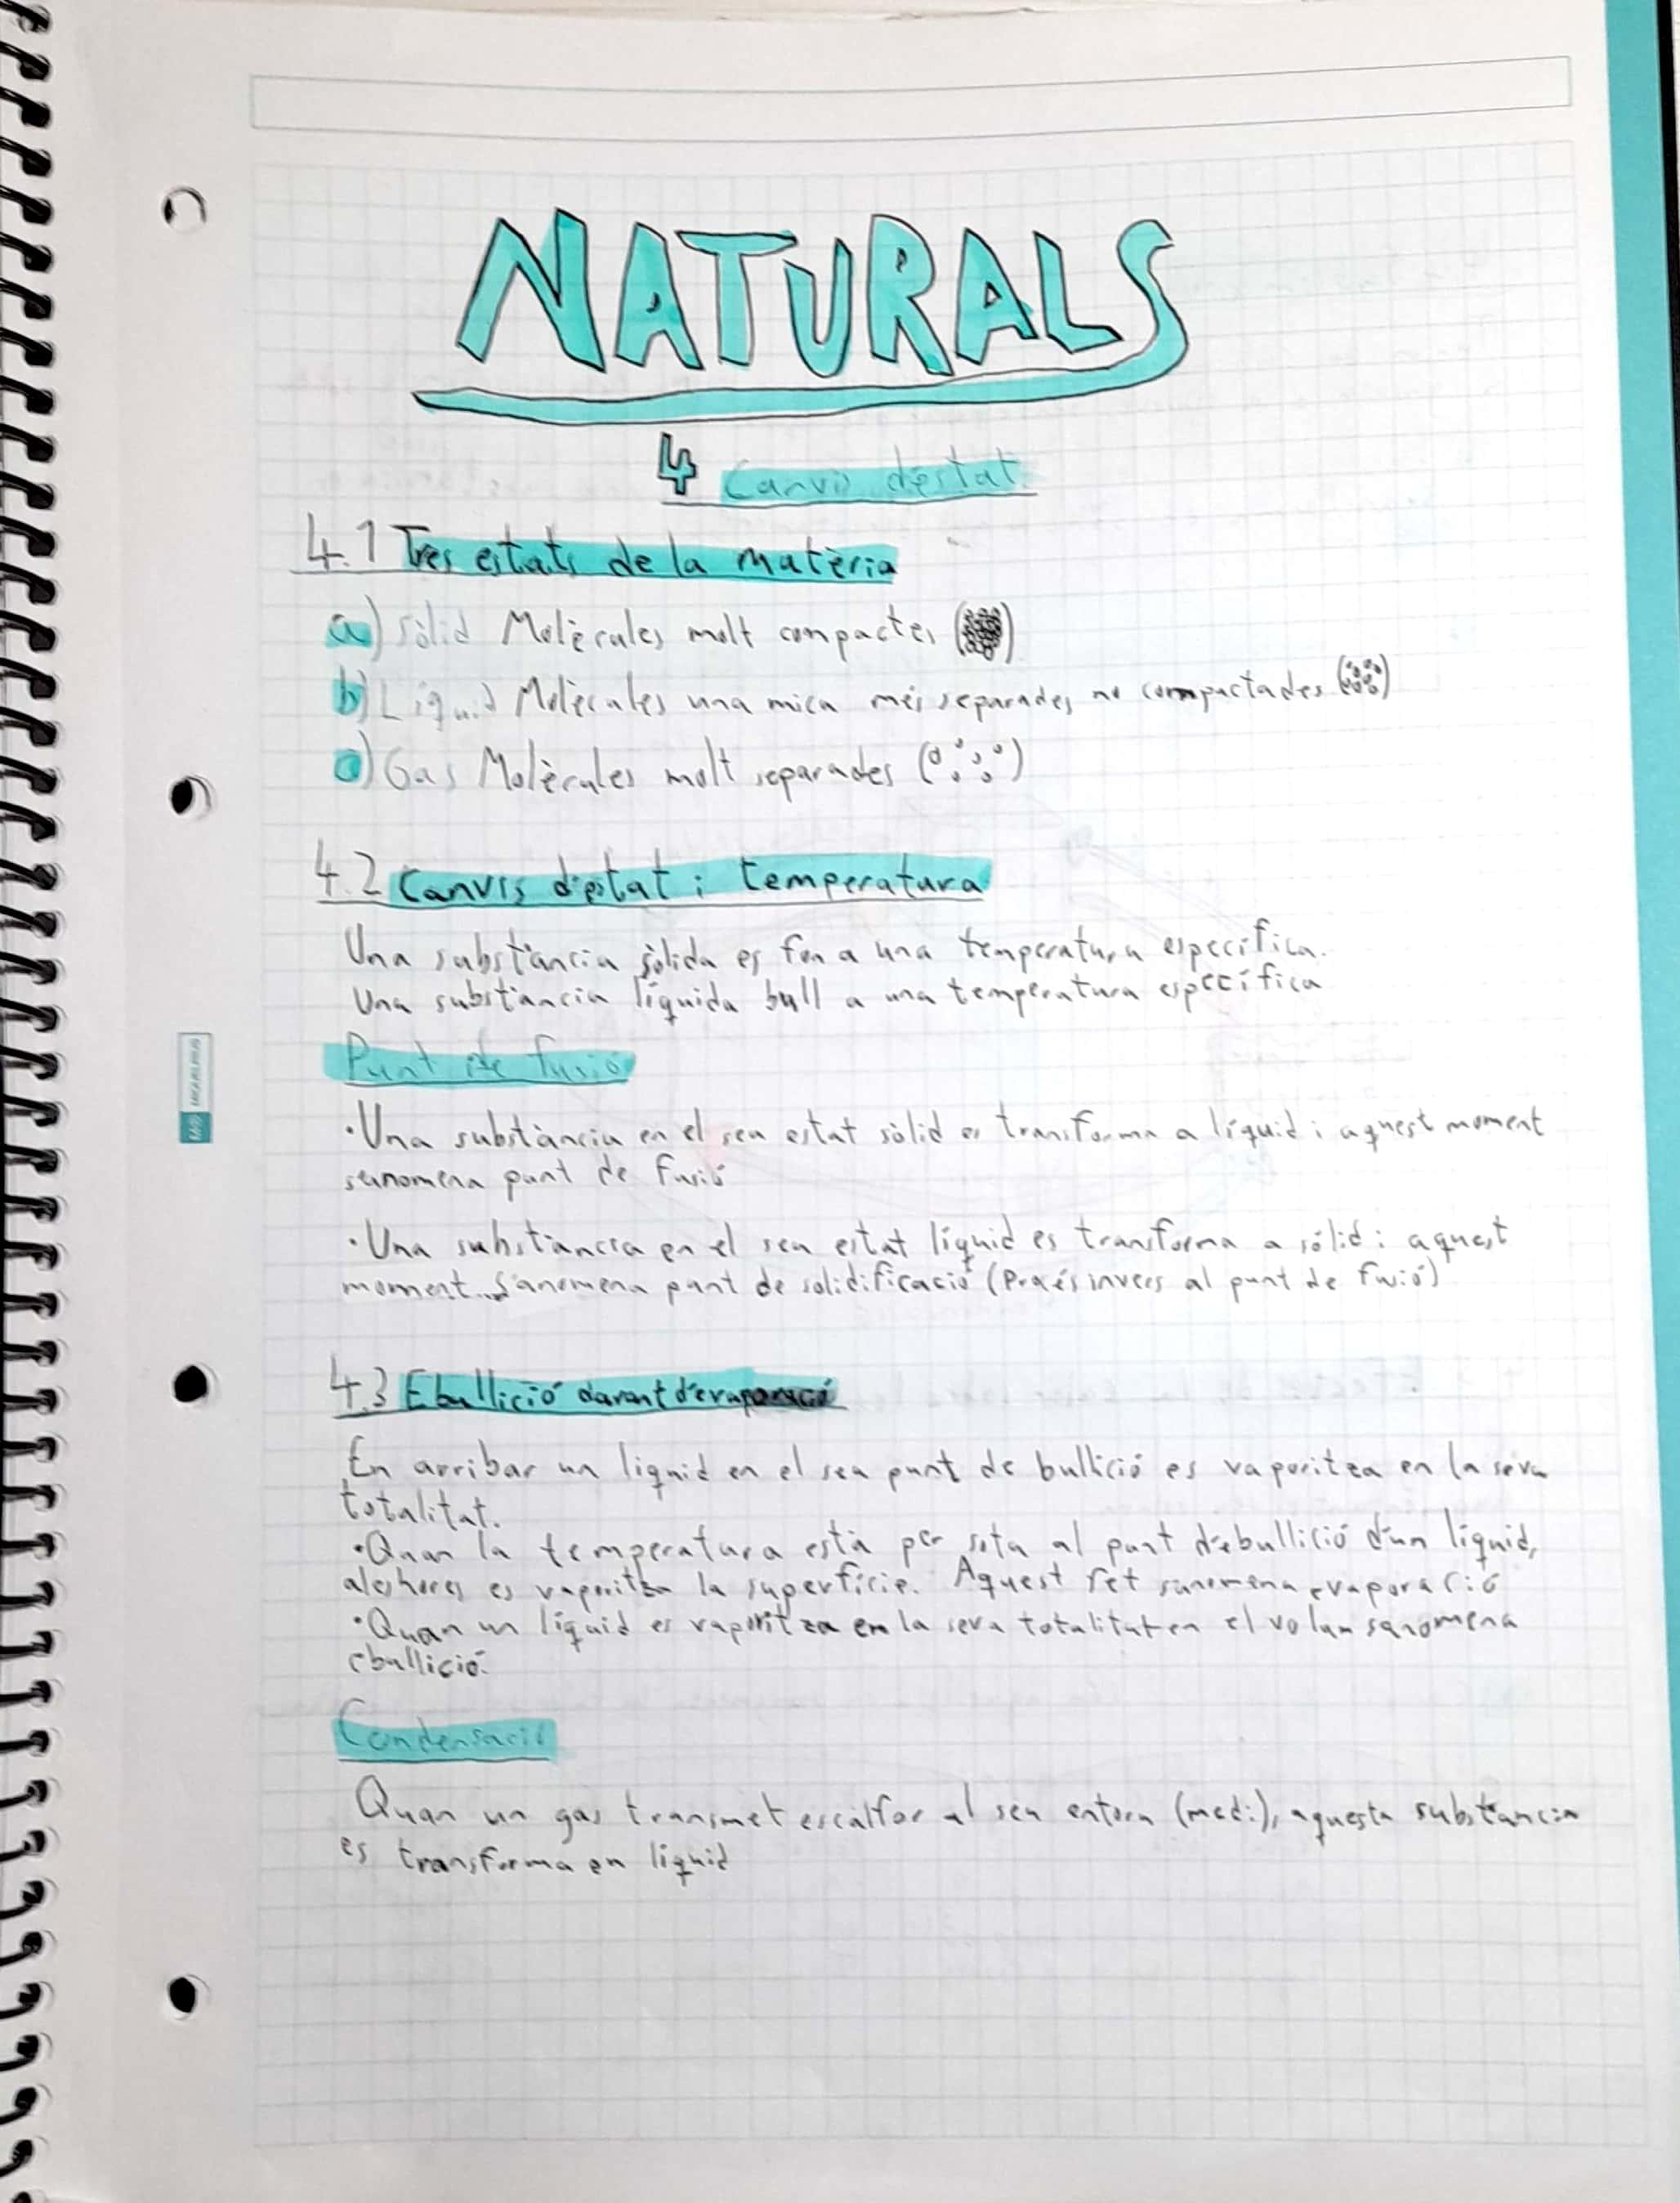 NATURALS
4 Canvis d'estat
4.1 Tres estats de la matèria
a) Sòlid Molècules molt compactes
b) Líquid Molècules una mica més separades no compactades
c) Gas Molècules molt separades
4.2 Canvis d'estat i temperatura
Una substància sòlida es fon a una temperatura específica.
Una substància líquida bull a una temperatura específica
Punt de fusió
• Una substància en el seu estat sòlid es transforma a líquid i aquest moment
s'anomena punt de fusió
• Una substància en el seu estat líquid es transforma a sòlid i aquest
moment s'anomena punt de solidificació (Procés invers al punt de fusió)
4.3 Ebullició davant d'evaporació
En arribar un líquid en el seu punt de bullició es vaporitza en la seva
totalitat.
• Quan la temperatura està per sota al punt d'ebullició d'un líquid,
aleshores es vaporitza la superfície. Aquest fet s'anomena evaporació
• Quan un líquid es vaporitza en la seva totalitat en el volum s'anomena
ebullició.
Condensació
Quan un gas transmet escalfor al seu entorn (medi), aquesta substància
es transforma en líquid